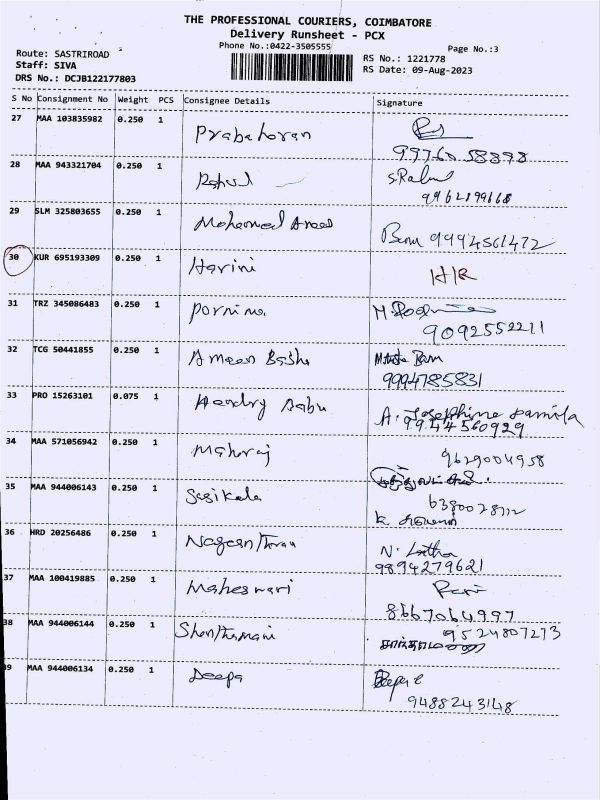 THE PROFESSIONAL COURIERS, COIMBATORE
Delivery Runsheet - PCX
Phone No.:0422-3505555
Page No.:3
Route: SASTRIROAD
Staff: SIVA
DRS No.: DCJB122177803
RS No.: 1221778
RS Date: 09-Aug-2023
S No Consignment No Weight PCS Consignee Details Signature
27 MAA 103835982 0.250 1 Prabaharan
28 MAA 943321704 0.250 1 Rahul
29 SLM 325803655 0.250 1 Mohamed Anees
9994561472
30 KUR 695193309 0.250 1 Harini
H/R
31 TRZ 345086483 0.250 1 Pornima
9092552211
32 TCG 50441855 0.250 1 Ameen Basha
9994785831
33 PRO 15263101 0.075 1 Hendry Babu
A. Josephine
9944560929
34 MAA 571056942 0.250 1 Maharaj
9629004958
35 MAA 944006143 0.250 1 Sasikala
36 HRD 20256486 0.250 1
N. Latha
9894279621
37 MAA 100419885 0.250 1 Maheswari
8667064997
38 MAA 944006144 0.250 1 Shanthamani
9524807273
39 MAA 944006134 0.250 1 Deepa
9488243148